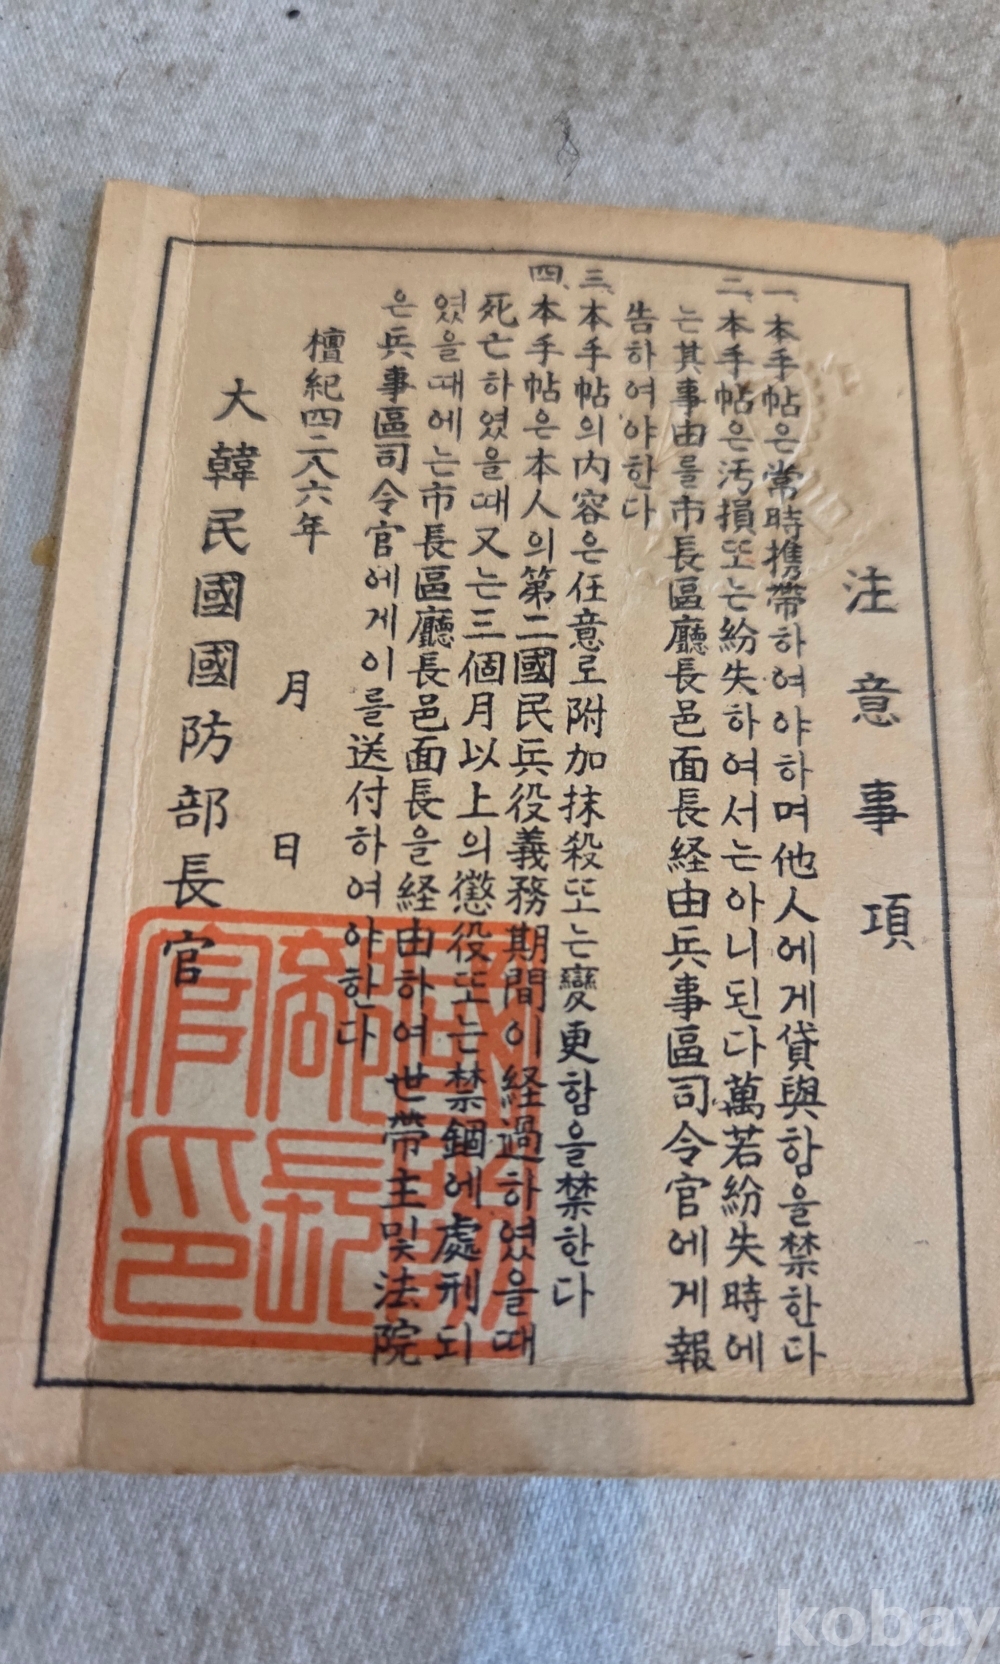 注意事項
一、本手帖은常時携帶하여야하며他人에게貸與함을禁한다
二、本手帖은汚損또는紛失하여서는아니된다萬若紛失時에
는其事由를市長區廳長邑面長経由兵事區司令官에게報
告하여야한다
三、本手帖의內容은任意로附加抹殺또는變更함을禁한다
四、本手帖은本人의第二國民兵役義務期間이経過하였을때
死亡하였을때又는三個月以上의懲役또는禁錮에處刑되
였을때에는市長區廳長邑面長을経由하여世帶主및法院
은兵事區司令官에게이를送付하여야한다
檀紀四二八六年 月 日
大韓民國國防部長官
國防部長官印
kobay